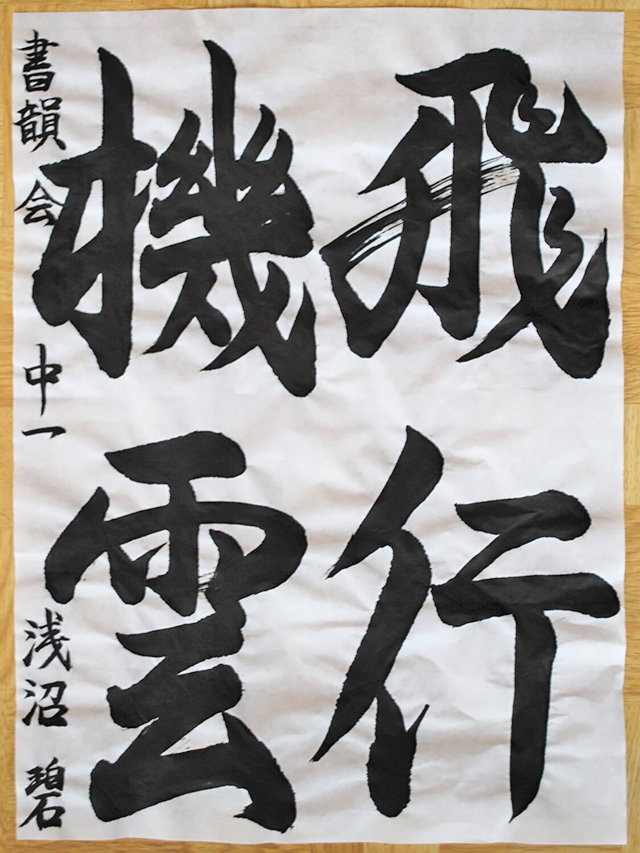 飛行
機雲
書韻会 中一 浅沼 碧